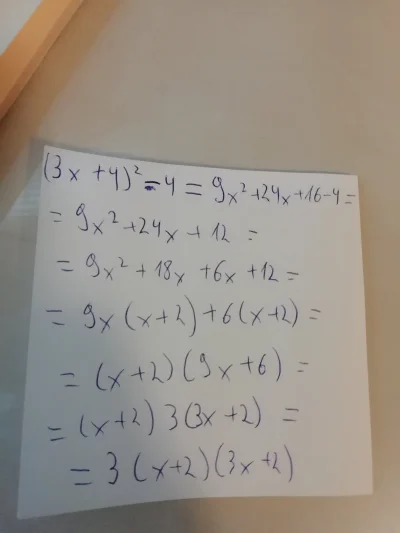 (3x+4)²-4 = 9x²+24x+16-4=
= 9x²+24x+12 =
= 9x²+18x +6x +12=
= 9x(x+2)+6(x+2)=
= (x+2)(9x+6)=
= (x+2)3(3x+2) =
= 3(x+2)(3x+2)